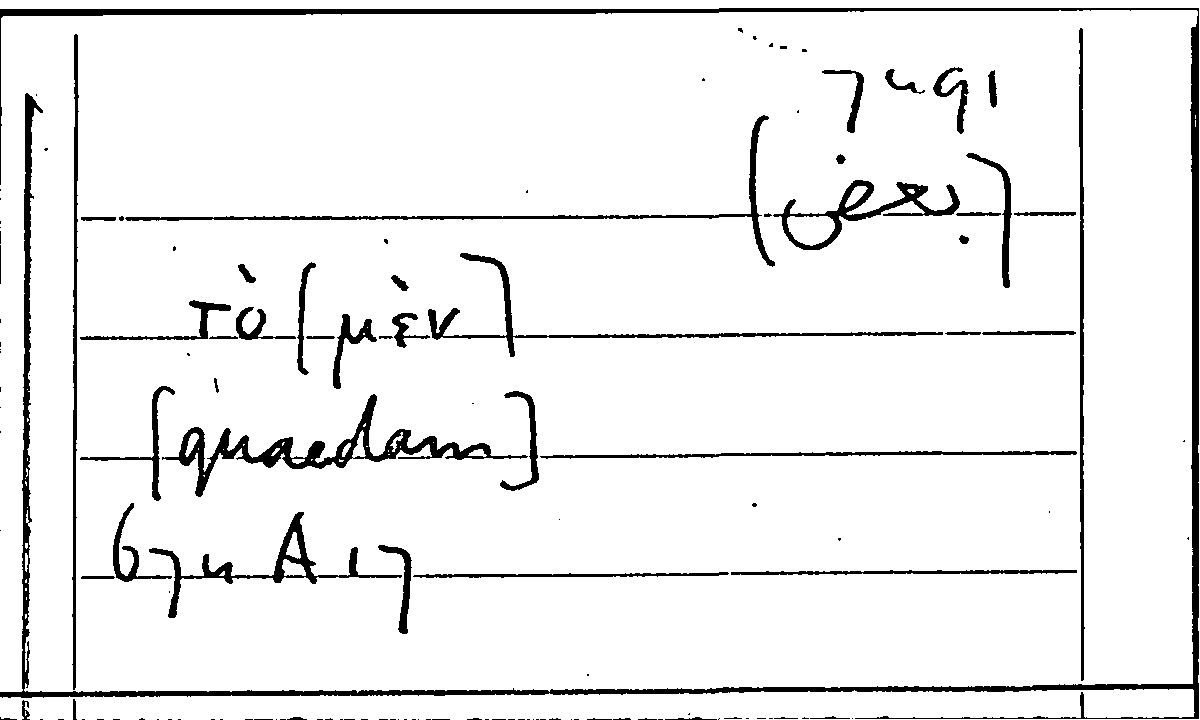 7491
ex.)
τὸ [μὲν]
[quaedam]
674 A 17